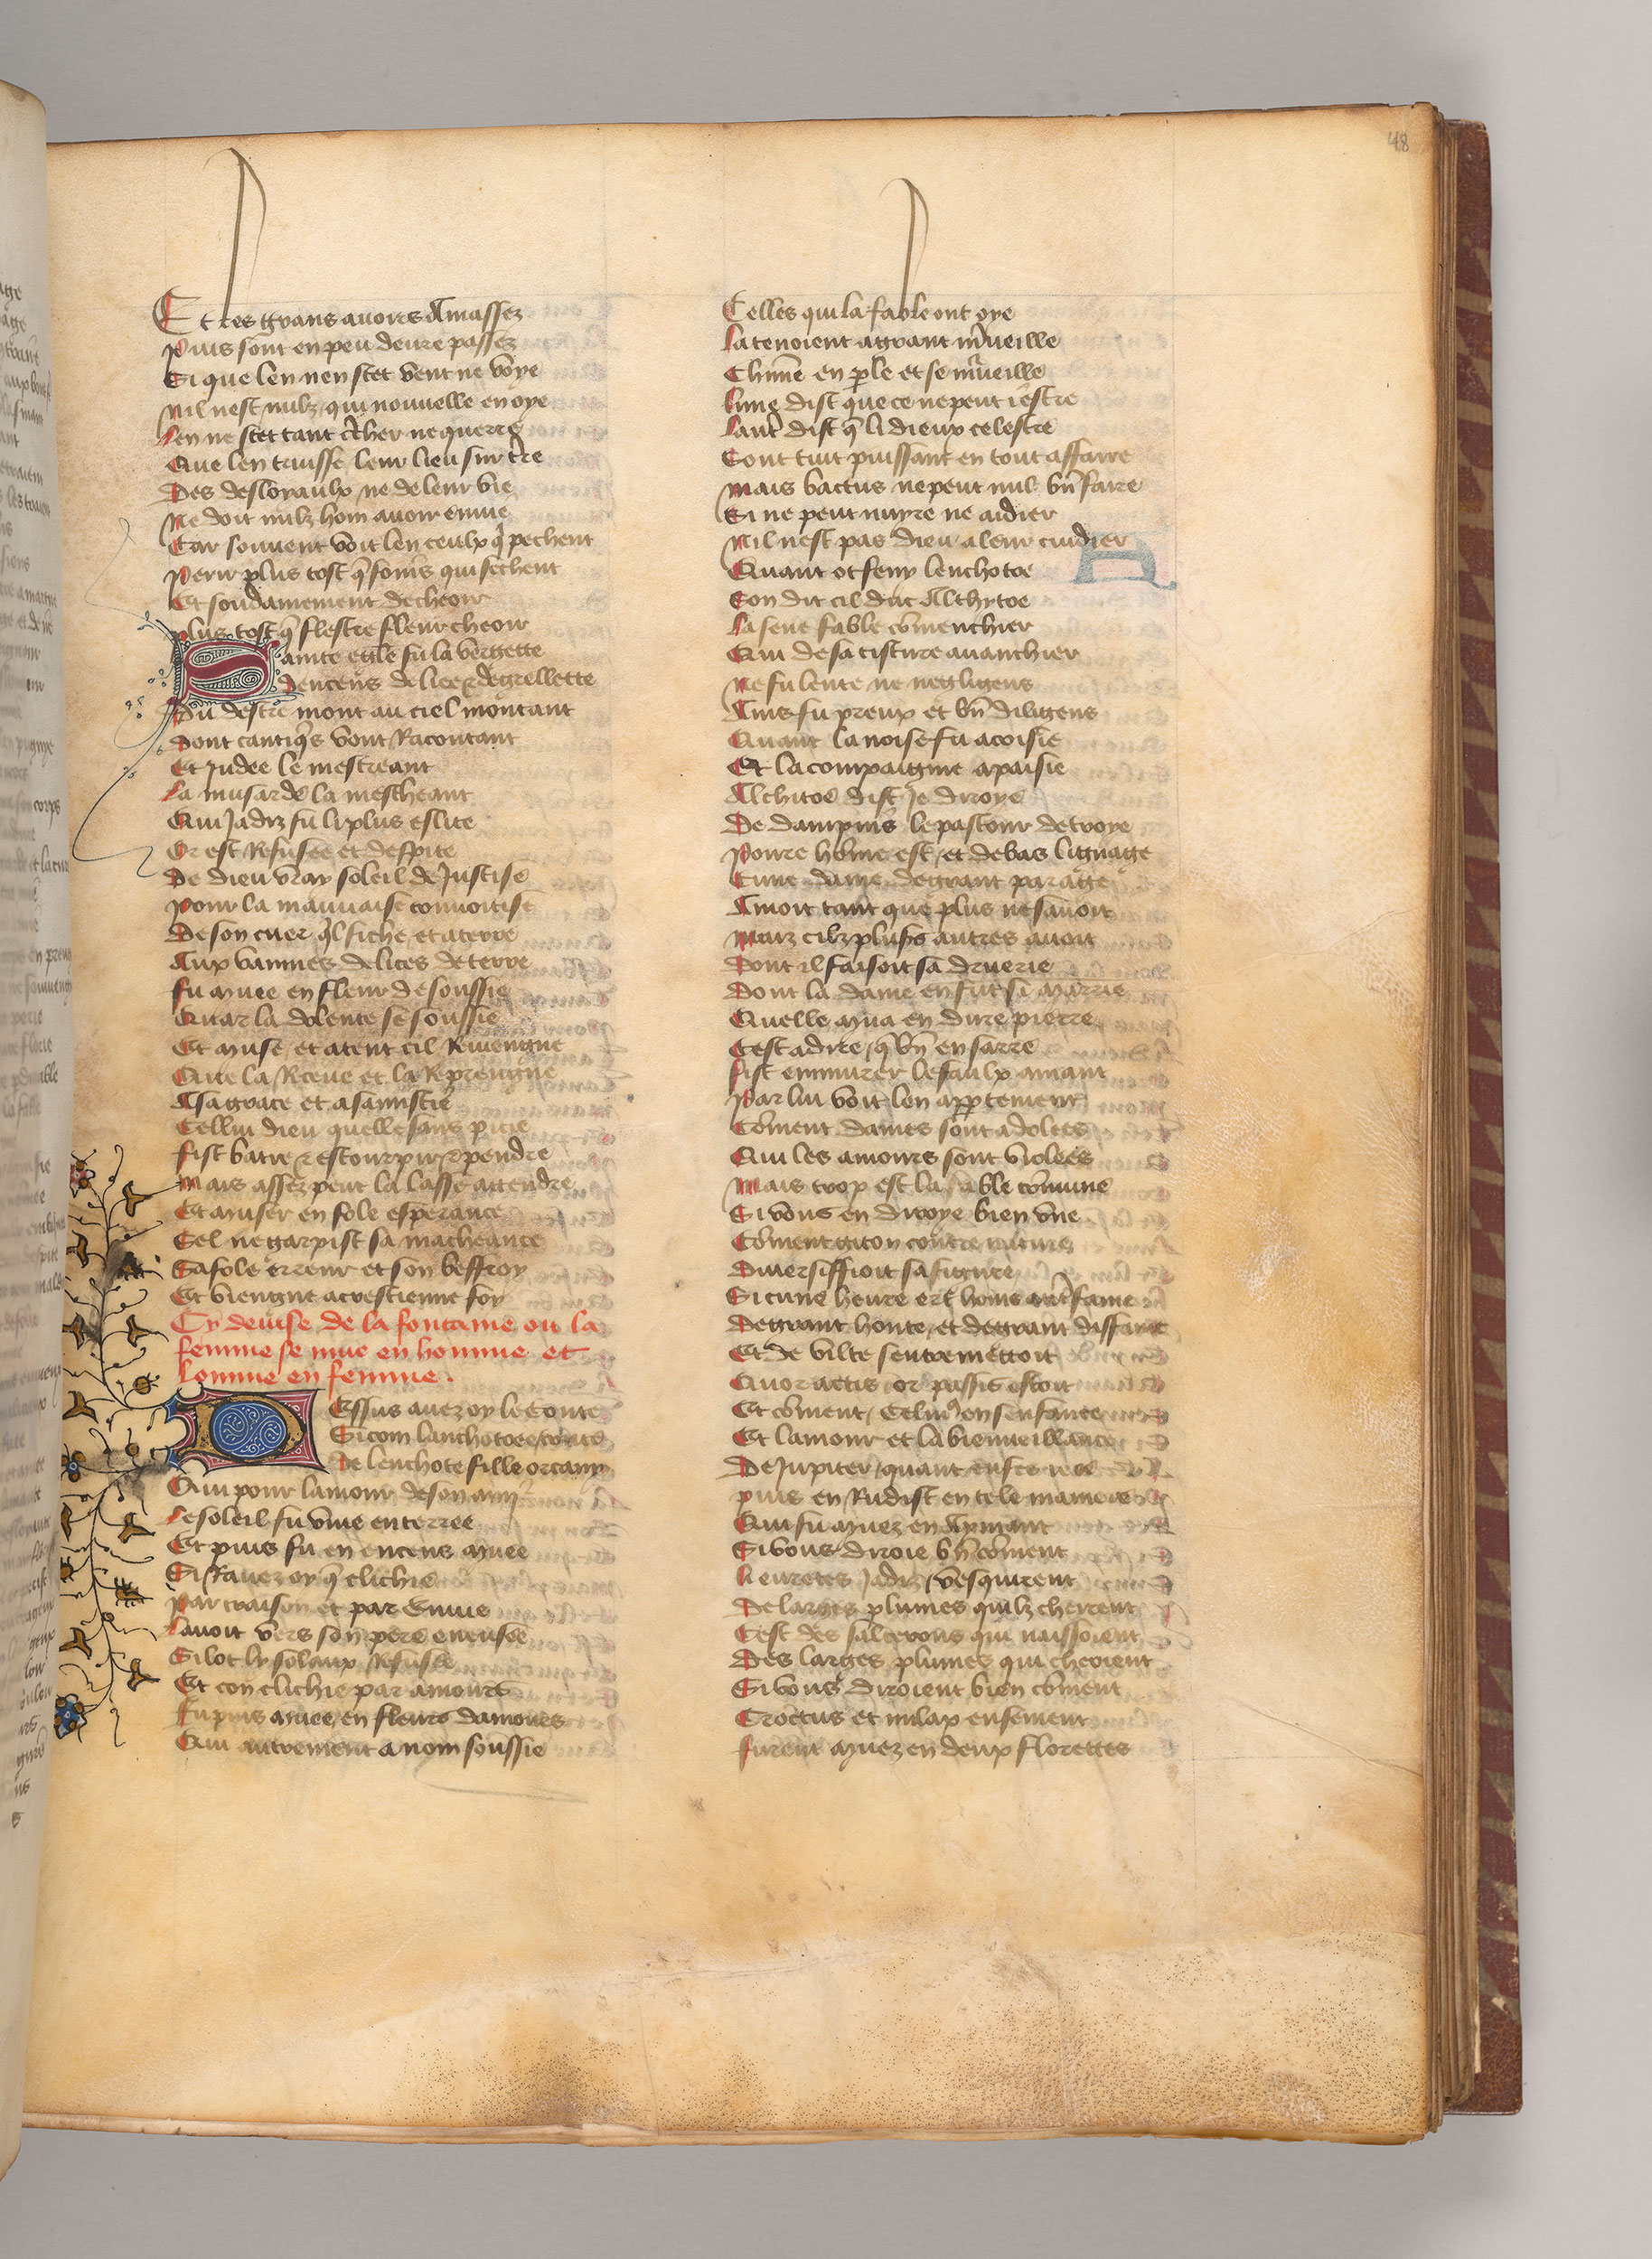 48
Et les grans auoirs Amassez
Puis sont en peu deure passez
Si que len nen scet vent ne voye
Nil nest nulz qui nouuelle en oye
Len ne scet tant ch̾er ne querre
Que len truisse leur lieu sur tr̾e
Des desloyaulx ne de leur vie
Ne doit nulz hom auoir enuie
Car souuent voit len ceulx q̾ pechent
Perir plus tost q̃ foins qui sechent
Et soudainement decheoir
Plus tost q̃ flestre fleur cheoir
Sainte egl̾e fu la vergette
Dencens delice & degrellette
Du destre mont au ciel montant
Dont cantiq̾s vont Racontant
Et Judee le mescreant
La musarde la mescheant
Qui Jadiz fu li plus eslite
Or est Refusee et despite
De dieu vray soleil de Justise
Pour la mauuaise conuoitise
De son cuer q̾l fiche et aterre
Aux vaines delices de terre
Fu muee en fleur de soussie
Quar la dolente se soussie
Et muse et atent cil Reuiengne
Que la Recue et la Repreuigne
A sa grace et a samistie
Cellui dieu quelle sans pitie
Fist batre & estourpir & pendre
Mais assez peut la lasse attendre
Et muser en fole esperance
Cel ne garpist sa macheance
Sa fole erreur et son beffroy
Et viengne a crestienne foy
Cy deuise de la fontaine ou la
femme se mue en homme et
lomme en femme.
Dessus auez oy le Conte
Si com lanchotoe conte
De lenchote fille orcamy
Qui pour lamour de son amy
Le soleil fu viue enterree
Et puis fu en encens muee
Si Rauez oy q̃ clichie
Par traison et par Enuie
Lauoit vers son pere encusee
Si lot ly solaux Refusee
Et con clichie par amours
Fu puis muee en fleurs damours
Qui autrement a nom soussie
Celles qui la fable ont oye
La tenoient a grant m̾ueille
Chūne en ple et se m̾ueille
Lune dist que ce ne peut iestre
Laut̾ dist q̃ li dieux celestre
Sont tuit puissant en tout affaire
Mais bactus ne peut nul bn̄ faire
Si ne peut nuyre ne aidier
Nil nest pas dieu a leur cuidier
Quant ot feny lenchotoe
Son dit cil dut Alchytoe
La seue fable cōmenchier
Qui de sa tisture auanchier
Ne fu lente ne negligens
Ains fu preux et bn̄ diligens
Quant la noise fu acoisie
Et la compaignie apaisie
Alchitoe dist Je diroye
De dampnis le pastour de troye
Poure hōme est et de bas lignage
Cune dame de grant parage
Amoit tant que plus ne sauoit
Maiz cilz plus̾s autres auoit
Dont il faisoit sa druerie
Dont la dame en fut si marrie
Quelle mua en dure pierre
Cest adire q̃ bn̄ en sarre
Fist enmurer le faulx amant
Par lui voit len appertement
Cōment dames sont adolees
Qui les amours sont violees
Mais trop est la fable cōmune
Si vous en diroye bien vne
Cōment giton contre nature
Diuersiffioit sa figure
Si cune heure ert homs aut̾ fame
De grant honte et de grant diffame
Et de vilte sentremettoit
Quor actis or passis estoit
Et cōment Celmꝰ en senfance
Et lamour et la bienueillance
De Jupiter quant enfes iere
Puis en Rudist en tele maniere
Qui fu muez en Aymant
Si vous diroie bn̄ cōment
Li curetes Jadiz vesquirent
De larges plumes quilz cheirent
Cest des salterons qui naissoient
Des larges plumes qui cheoient
Si vous diroient bien cōment
Croctus et milax ensement
Furent muez en deux florettes